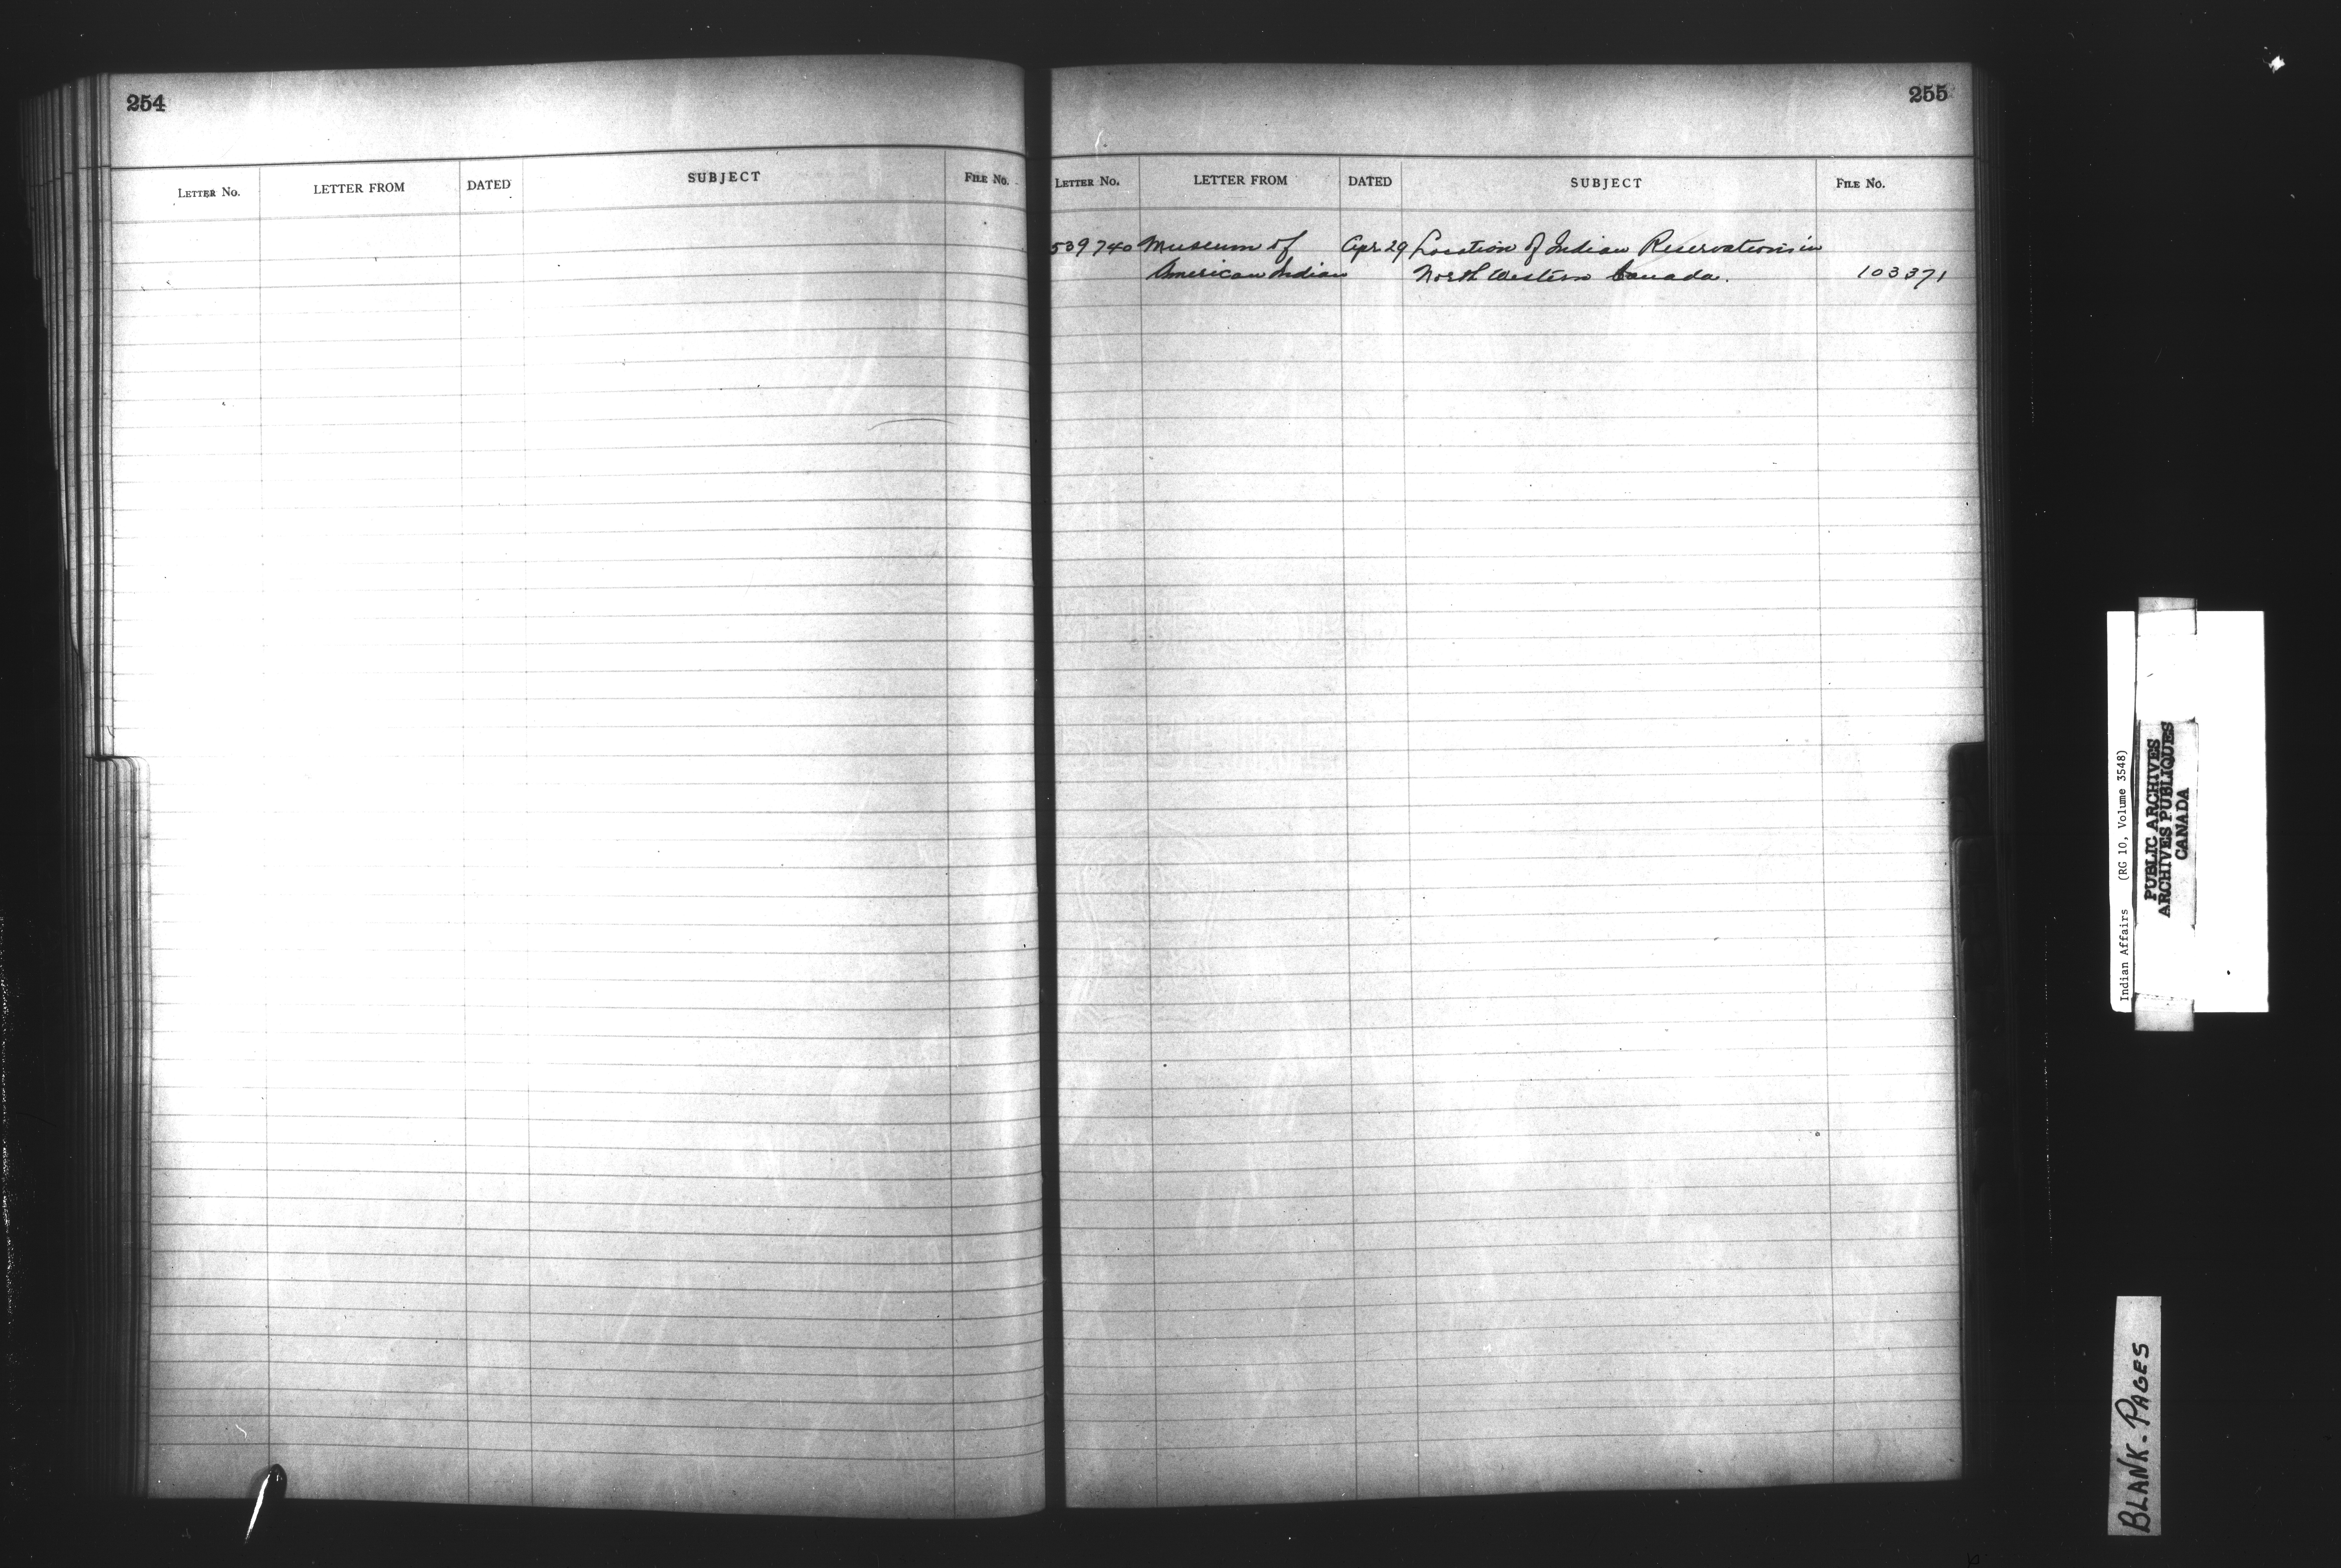 254
LETTER NO. LETTER FROM DATED SUBJECT FILE NO.
255
LETTER NO. LETTER FROM DATED SUBJECT FILE NO.
539740 Museum of Apr 29 Location of Indian Reservations in
American Indian North Western Canada. 103371
Indian Affairs (RG 10, Volume 3548)
PUBLIC ARCHIVES
ARCHIVES PUBLIQUES
CANADA
BLANK-PAGES